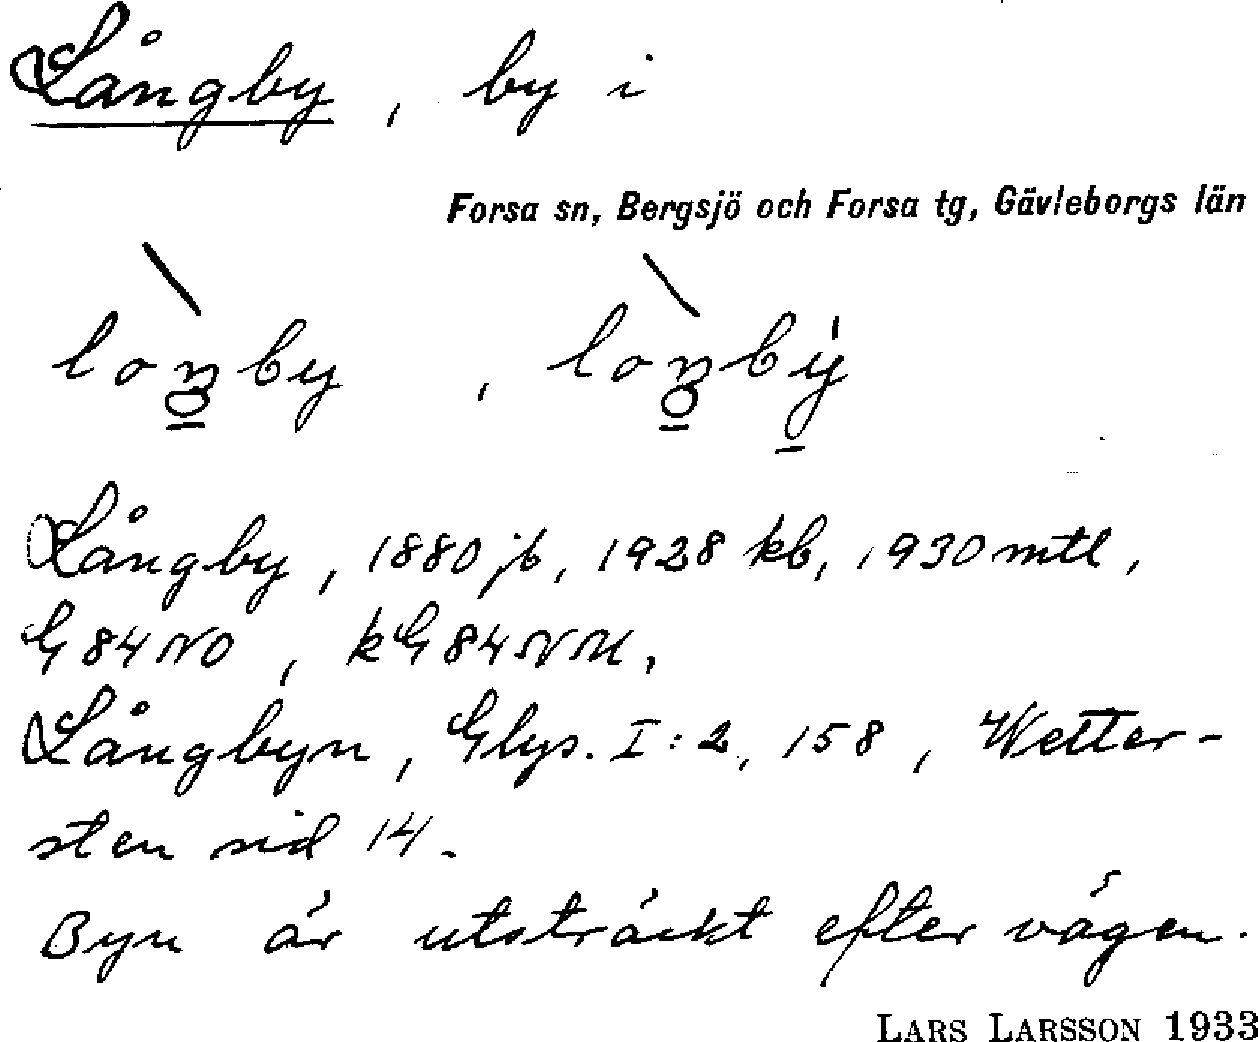 Långby, by i
Forsa sn, Bergsjö och Forsa tg, Gävleborgs län
loŋby, loŋbý
Långby, 1880 jb, 1928 kb, 1930 mtl,
G 84 NO, kG 84 NM,
Långbyn, Glys. I:2, 158, Wetter-
sten sid 14.
Byn är utsträckt efter vägen.
LARS LARSSON 1933